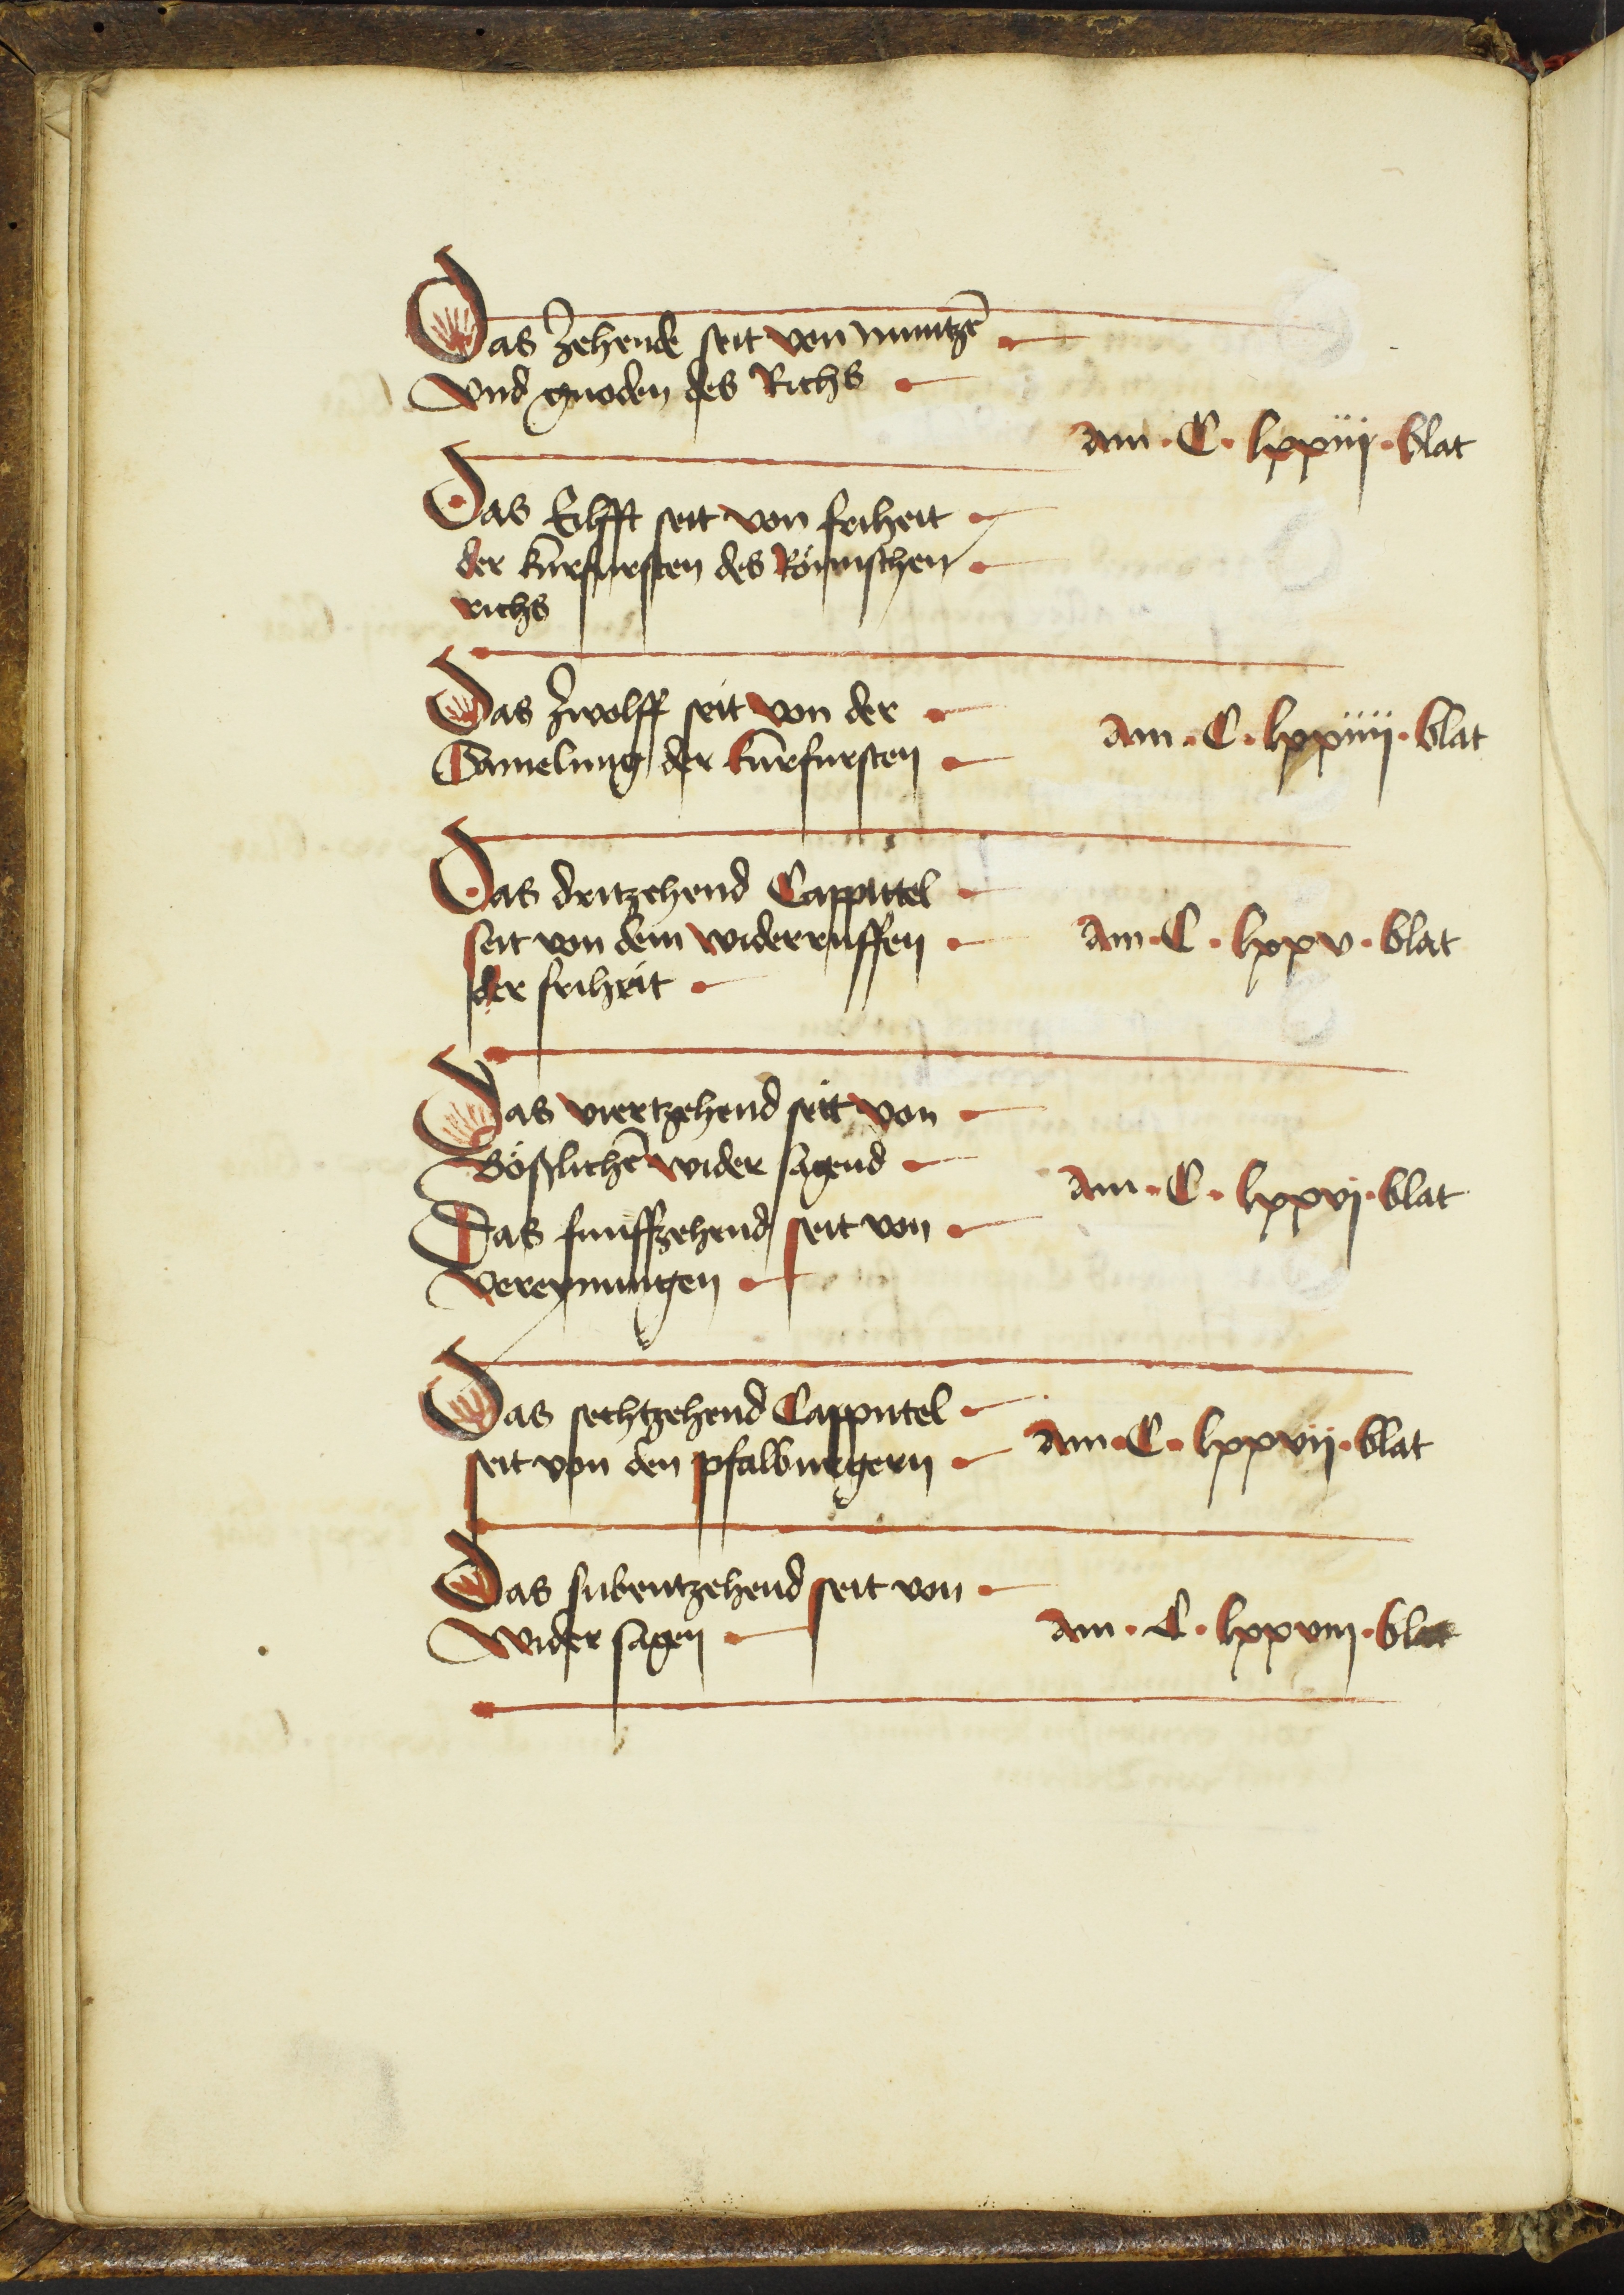 Das Zehende seit von muntzē
Vnd gnoden des Richs
am · C · lxxiij · blat
Das Eilfft seit von friheit
der kurfursten des Römischen
richs
Das Zwolff seit von der
Samelung der kurfursten
am · C · lxxiiij · blat
Das dritzehend Cappittel
seit von dem widerruffen
der friheit
am · C · lxxv · blat
Das viertzehend seit von
Bößlichē wider sagend
am · C · lxxvj · blat
Das funffzehend seit von
Vereynungen
Das sechtzehend Cappittel
seit von den pfalburgern
am · C · lxxvij · blat
Das subentzehend seit von
Wider sagen
am · C · lxxviij · blat